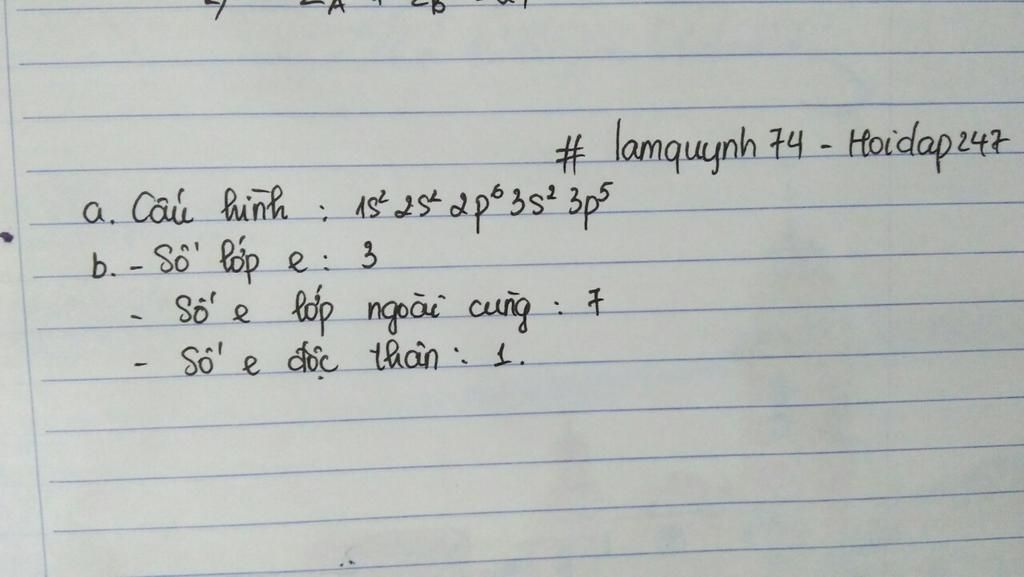 # lamquynh 74 - Hoidap 247
a. Cấu hình : 1s² 2s² 2p⁶ 3s² 3p⁵
b. - Số lớp e : 3
- Số e lớp ngoài cùng : 7
- Số e độc thân : 1.